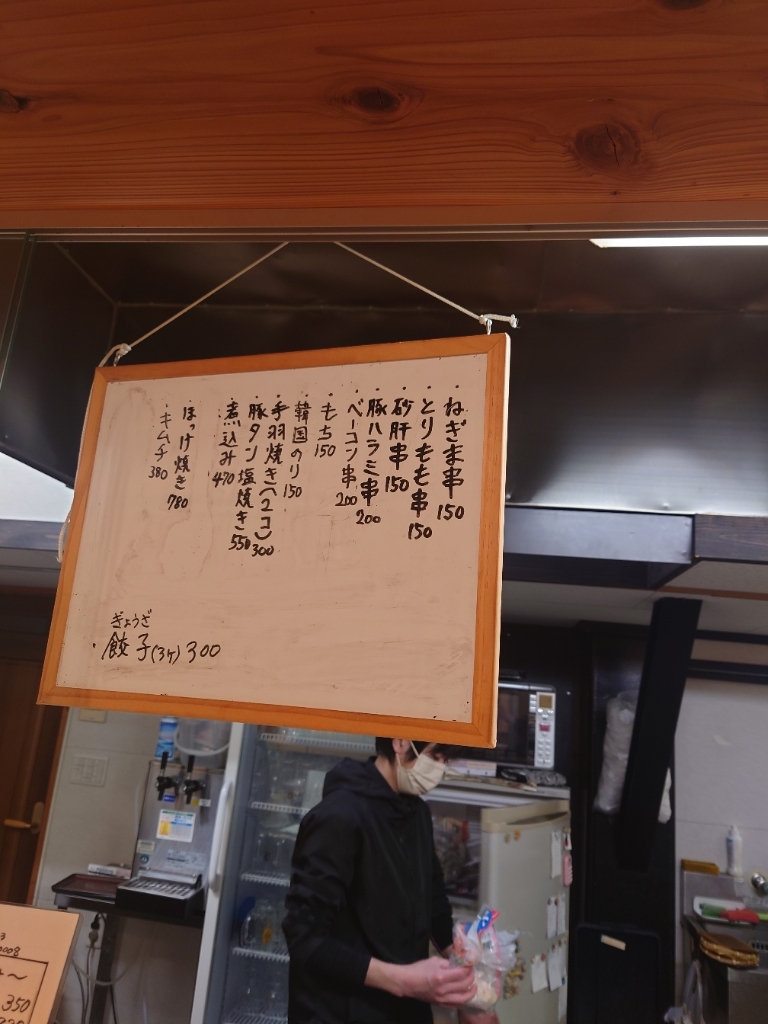 ・ねぎま串 150
・とりもも串 150
・砂肝串 150
・豚ハラミ串 200
・ベーコン串 200
・もち 150
・韓国のり 150
・手羽焼き(2コ) 300
・豚タン塩焼き 550
・煮込み 470
・ほっけ焼き 780
・キムチ 380
ぎょうざ
・餃子(3ケ) 300
350